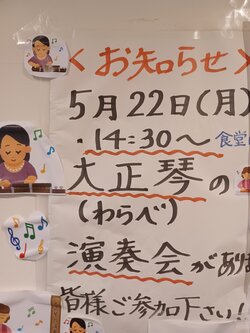 <お知らせ>
5月22日(月)
・14:30〜 食堂
大正琴の
(わらべ)
演奏会があり
皆様ご参加下さい!